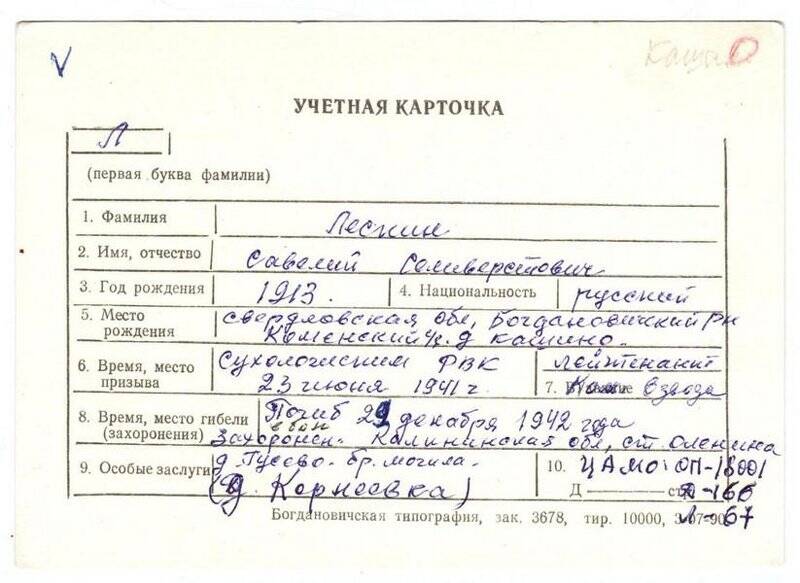 V
О
УЧЕТНАЯ КАРТОЧКА
Л
(первая буква фамилии)
1. Фамилия Лескин
2. Имя, отчество Савелий Селиверстович
3. Год рождения 1913. 4. Национальность русский
5. Место рождения Свердловская обл, Богдановичский рн
Каменский д Кашино.
6. Время, место призыва Сухоложским РВК
23 июня 1941 г.
Лейтенант
7. взвода
8. Время, место гибели (захоронения) Погиб 29 декабря 1942 года
в бою
Захоронен - Калининская обл, ст. Оленина
9. Особые заслуги д. Гусево - бр. могила.
(д. Корнеевка)
10. ЦАМО: ОП-18001
Д Д-166
Л-67
Богдановичская типография, зак. 3678, тир. 10000, 3-07-90